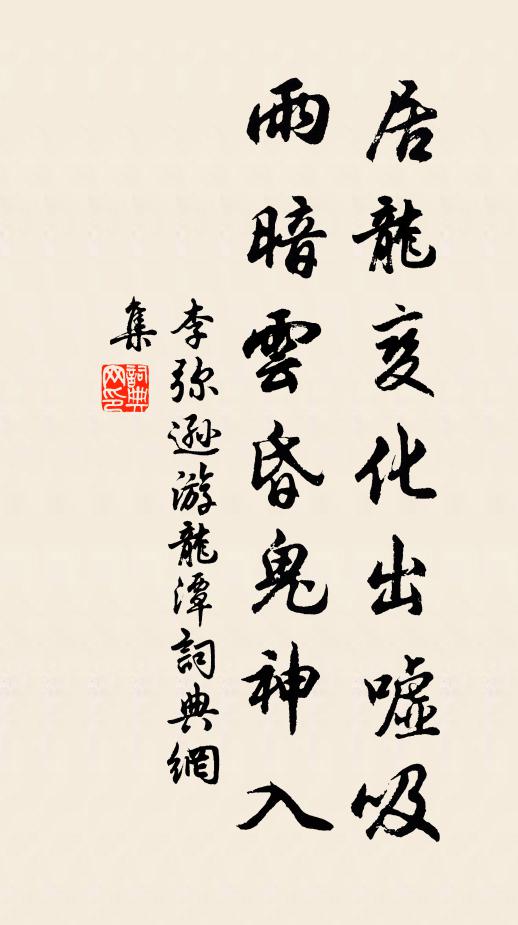 居龍变化出嘘吸
雨暗雲昏鬼神入
李弥遜游龍潭詞典網
集
詞典
网印